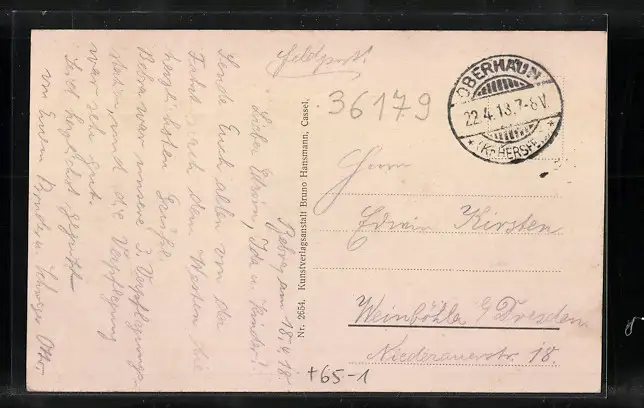 Feldpost.
36179
OBERHAUN
22.4.18.7-8V.
* (KR. HERSFELD) *
Herrn
Edwin Kirsten
Weinböhla b/Dresden
Niederauerstr. 18.
Nr. 2654. Kunstverlagsanstalt Bruno Hansmann, Cassel.
Bebra, am 18.4.18
Lieber Edwin, Ida u. Kinder!
Sende Euch allen von der
Fahrt nach dem Westen die
herzlichsten Grüße.
Bebra war unsere 3. Verpflegungs-
station, und die Verpflegung
war sehr gut.
Seid herzlichst gegrüßt
von Eurem Bruder u. Schwager Otto.
+65-1